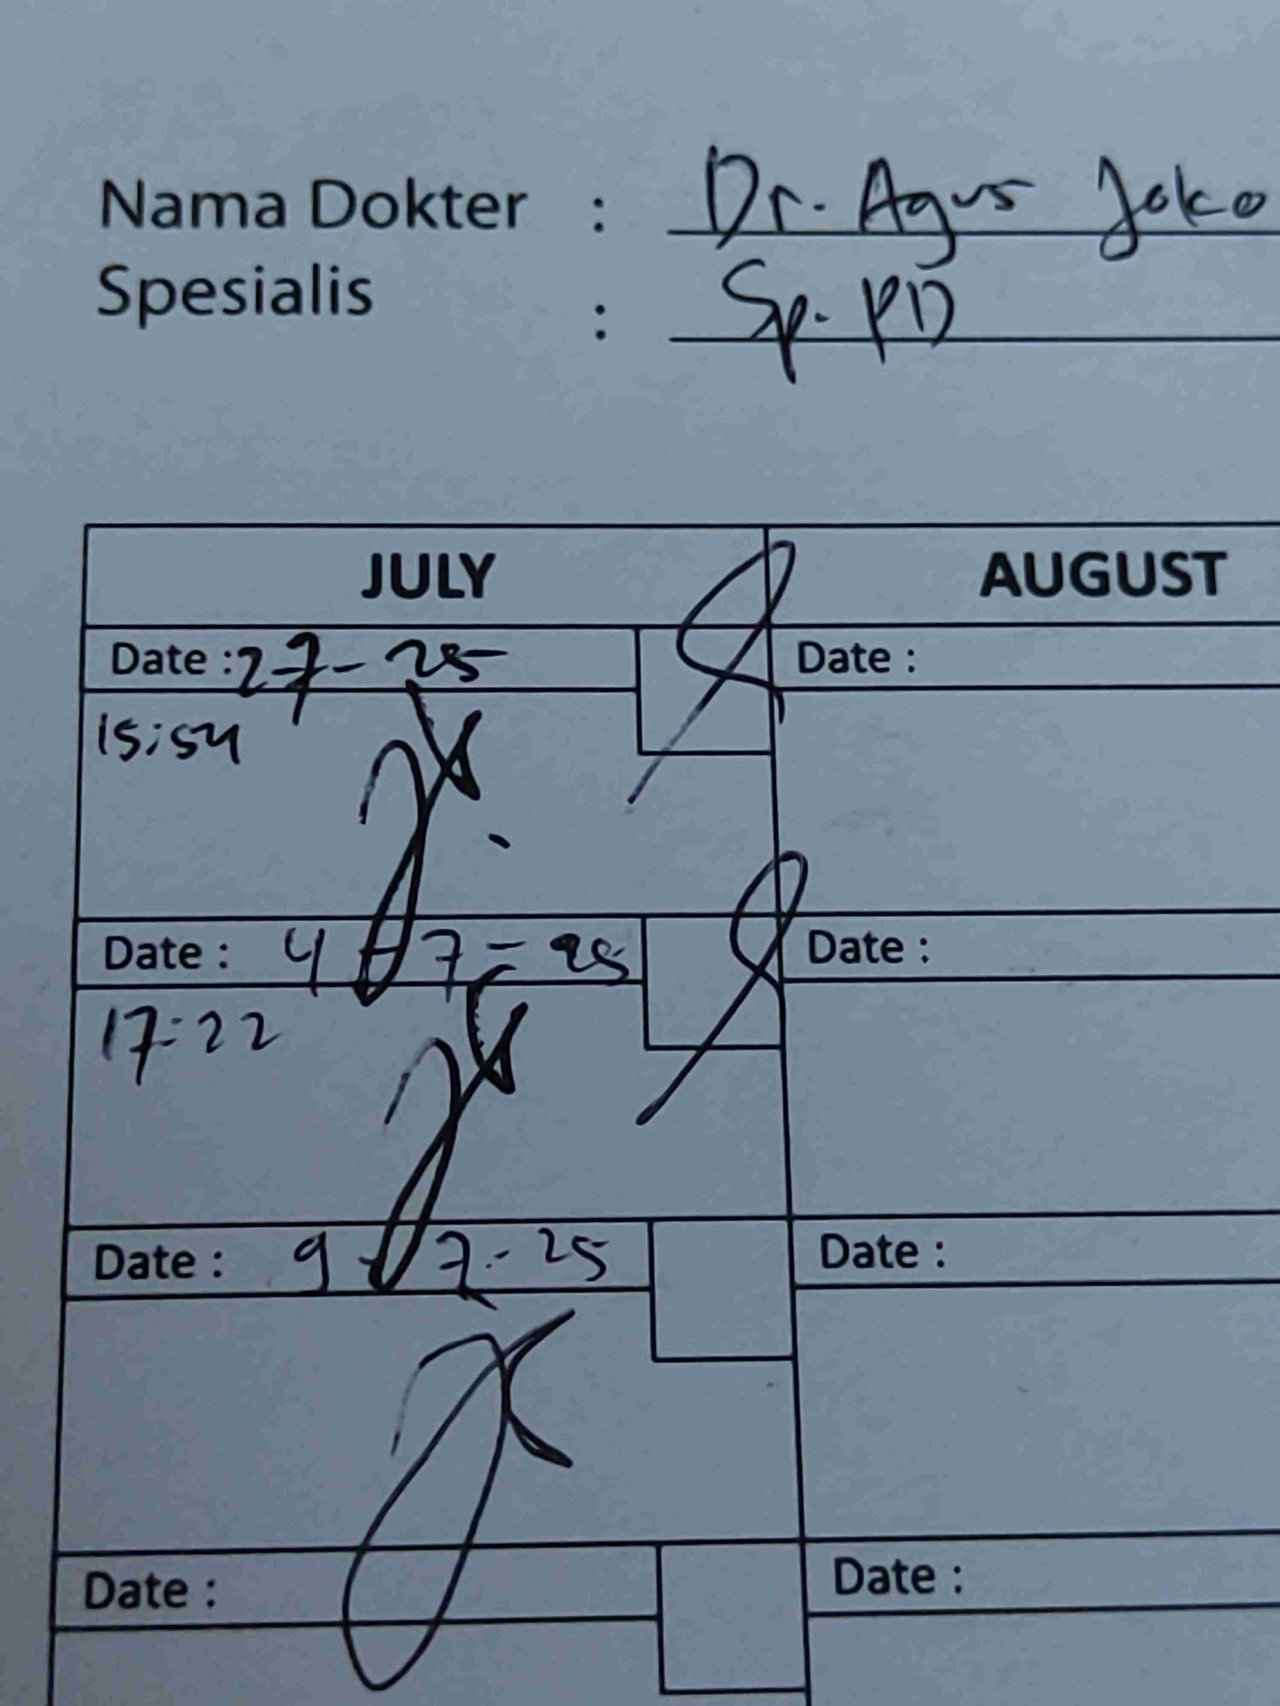 Nama Dokter : Dr. Agus Joko
Spesialis : Sp. PD
JULY AUGUST
Date : 27-25 Date :
15:54
Date : 4-7-25 Date :
17:22
Date : 9-7-25 Date :
Date : Date :